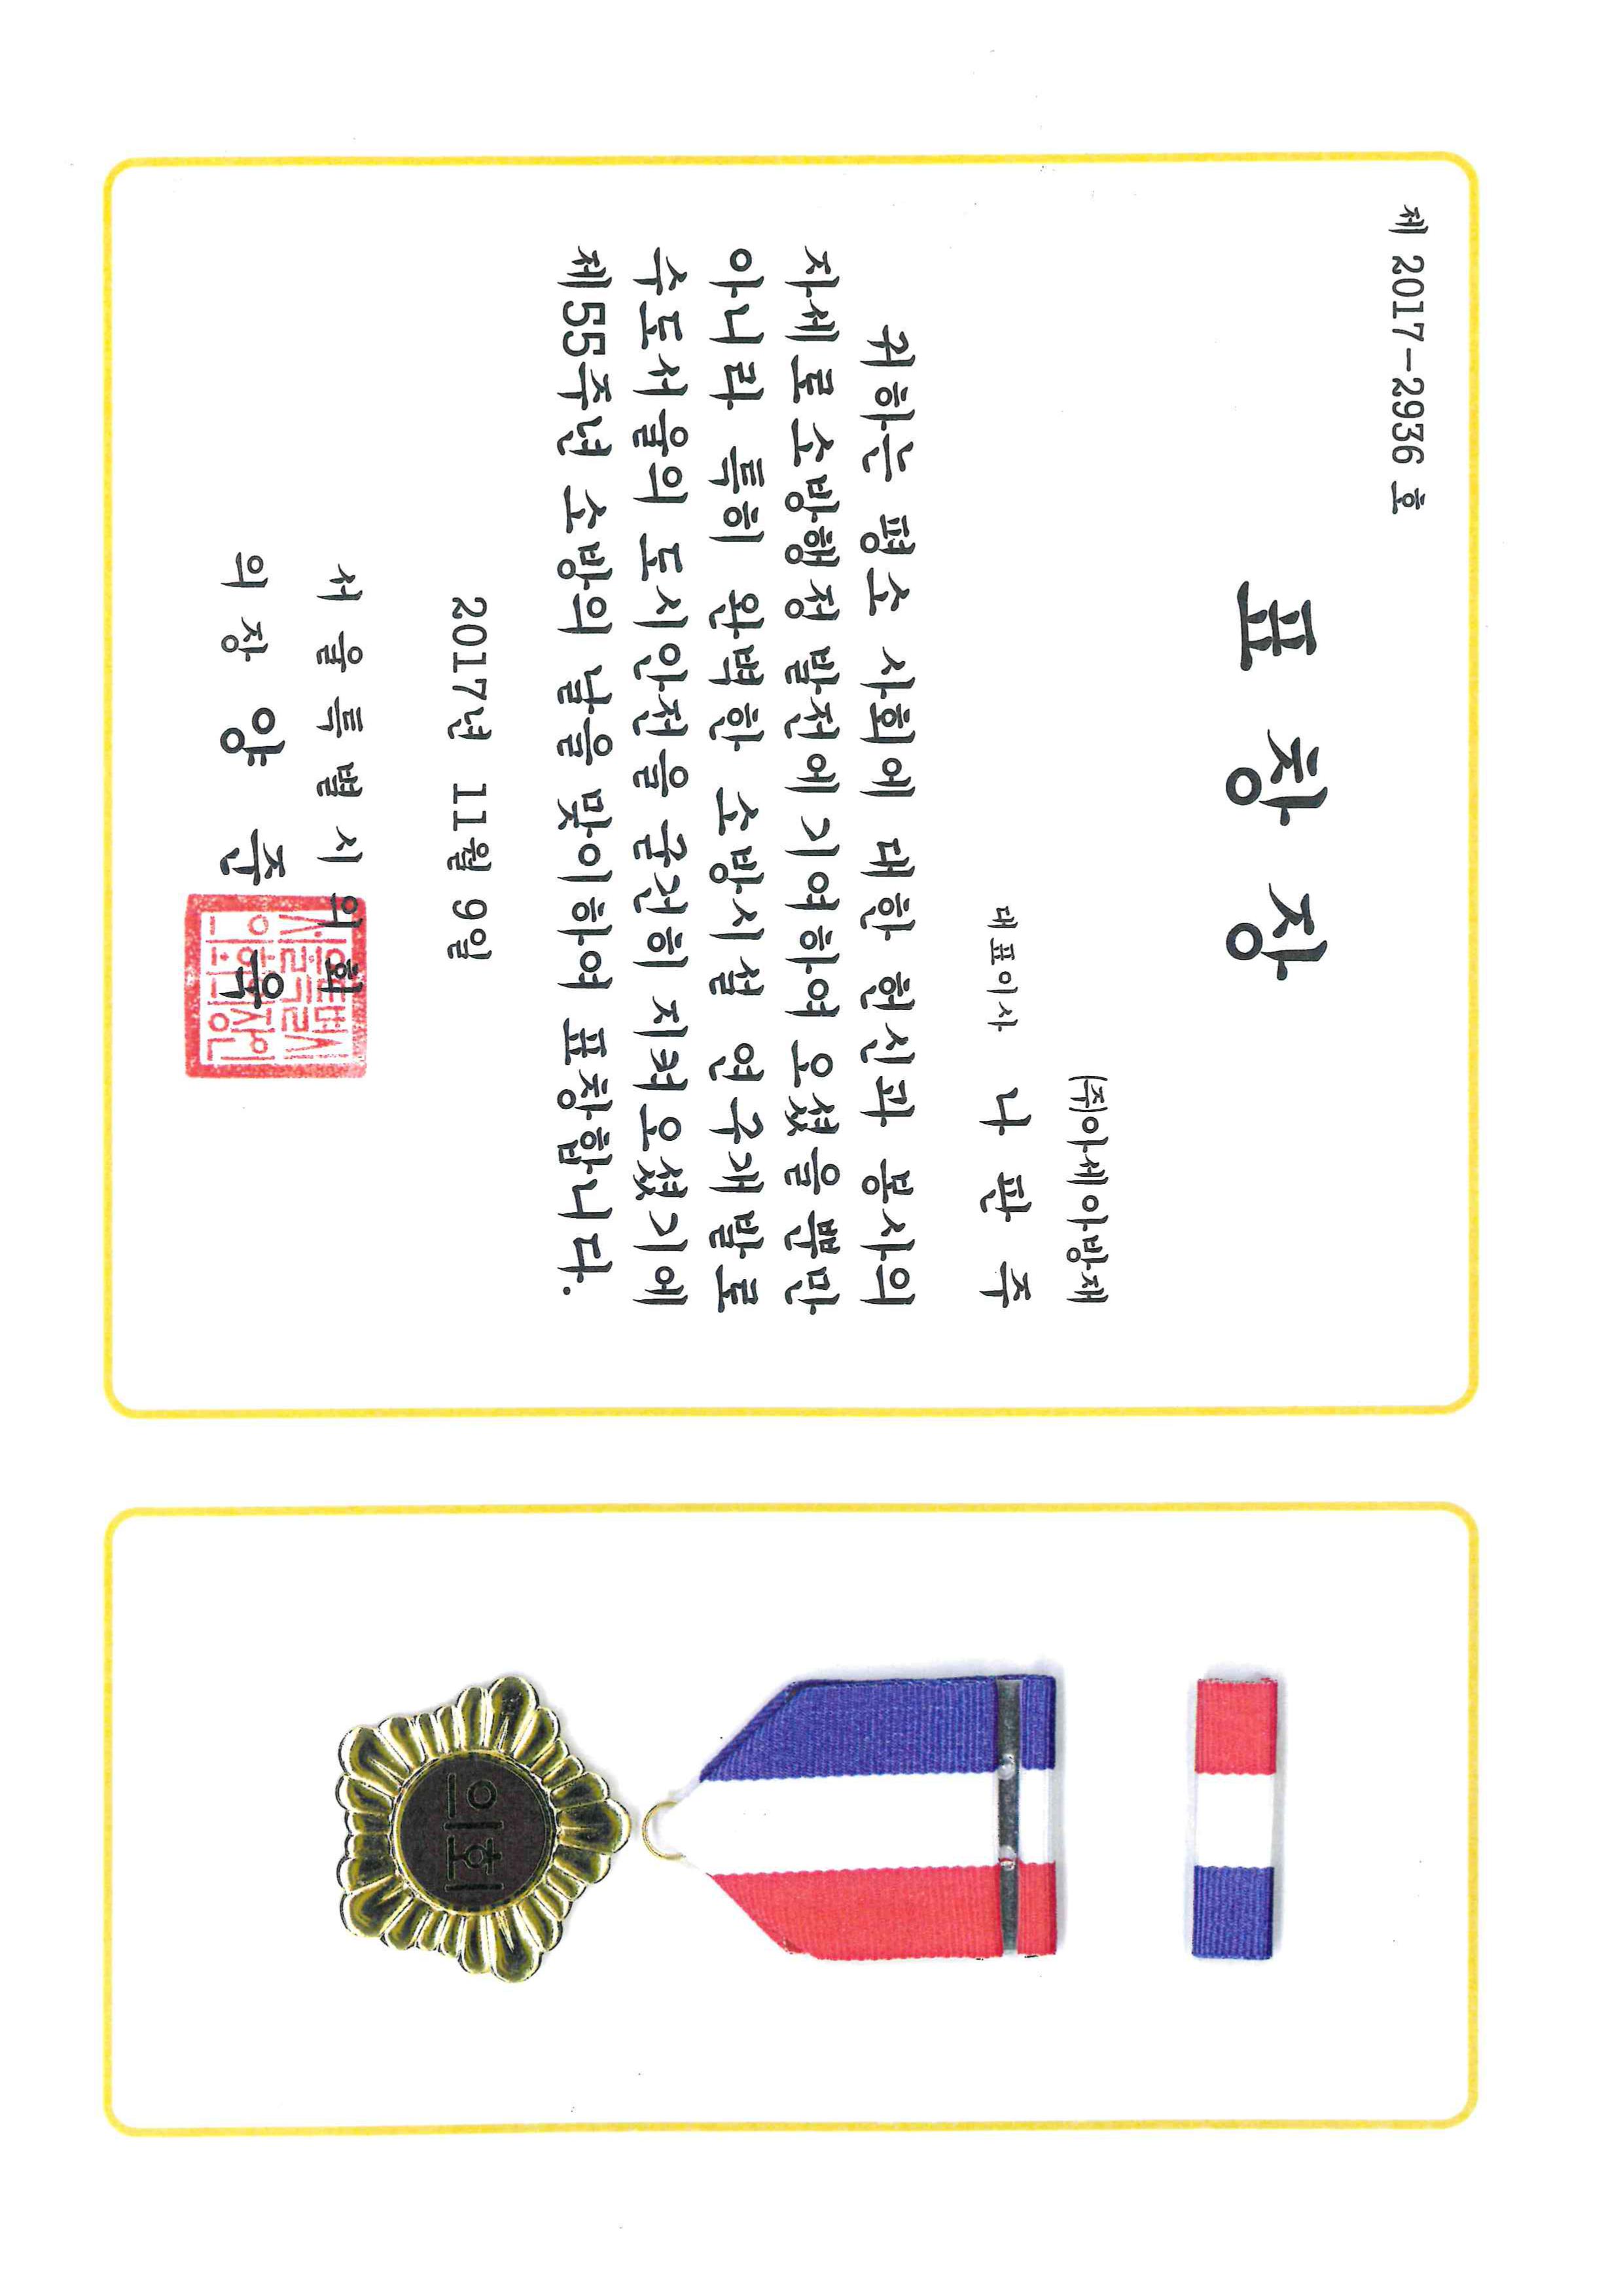 제 2017-2936 호
표 창 장
(주)아세아방재
대표이사 나 판 주
귀하는 평소 사회에 대한 헌신과 봉사의
자세로 소방행정 발전에 기여하여 오셨을 뿐만
아니라 특히 완벽한 소방시설 연구개발로
수도서울의 도시안전을 굳건히 지켜오셨기에
제55주년 소방의 날을 맞이하여 표창합니다.
2017년 11월 9일
서울특별시의회
의장 양 준 욱
서울특별시
의회의장인
의회